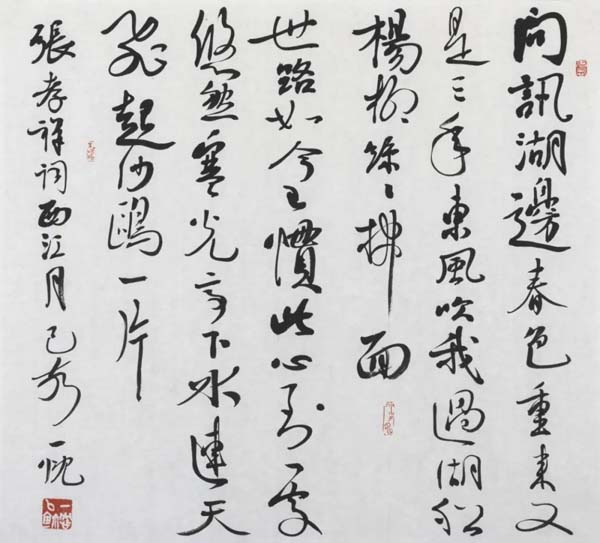 問訊湖邊春色重来又
是三年東風吹我過湖船
楊柳絲〻拂面
世路如今已慣此心到處
悠然寒光亭下水連天
飛起沙鷗一片
張孝祥詞西江月己亥一